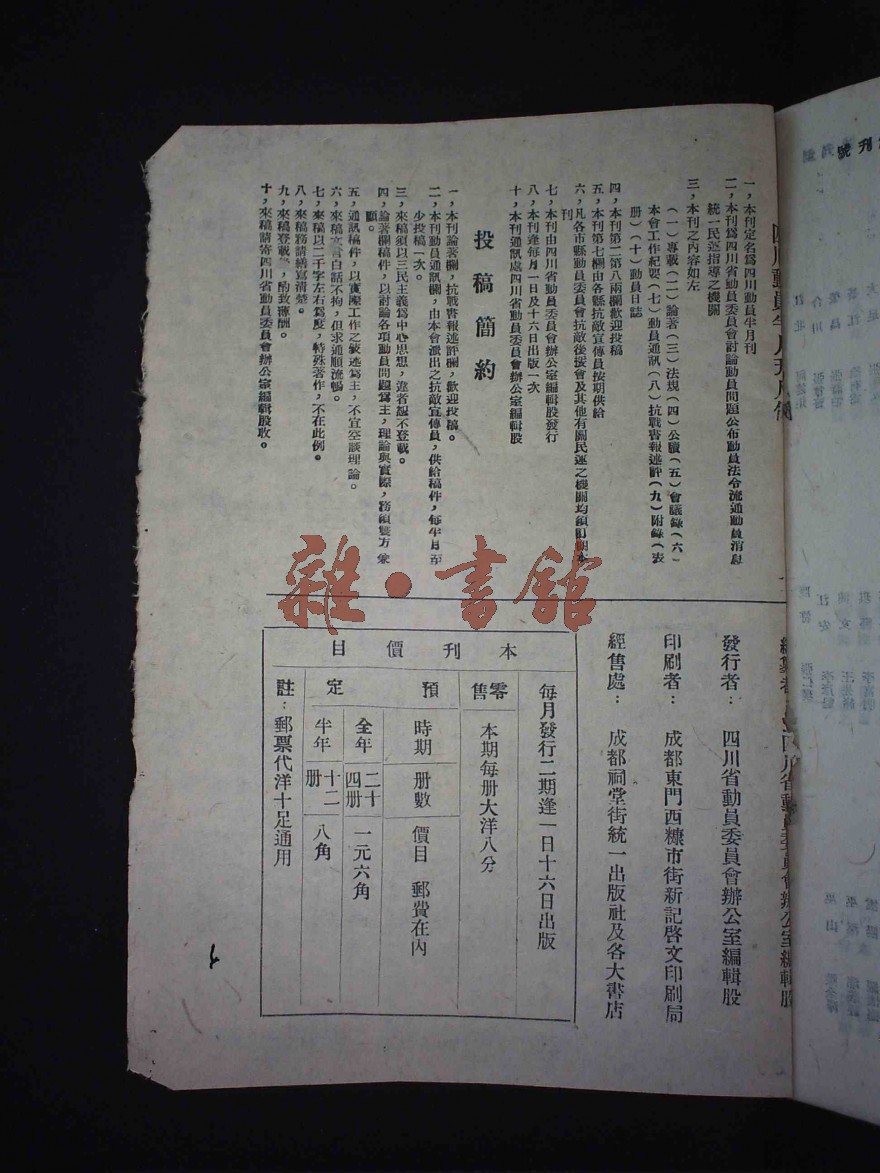 四川動員半月刊
一，本刊定名爲四川動員半月刊
二，本刊爲四川省動員委員會討論動員問題公布動員法令流通動員消息
統一民運指導之機關
三，本刊之內容如左
（一）專載（二）論著（三）法規（四）公牘（五）會議錄（六）
本會工作紀要（七）動員通訊（八）抗戰書報述評（九）附錄（表
册）（十）動員日誌
四，本刊第二第八兩欄歡迎投稿
五，本刊第七欄由各縣抗敵宣傳員按期供給
六，凡各市縣動員委員會抗敵後援會及其他有關民運之機關均須訂閱本
刊
七，本刊由四川省動員委員會辦公室編輯股發行
八，本刊逢每月一日及十六日出版一次
十，本刊通訊處四川省動員委員會辦公室編輯股
投稿簡約
一，本刊論著欄，抗戰書報述評欄，歡迎投稿。
二，本刊動員通訊欄，由本會派出之抗敵宣傳員，供給稿件，每半月至
少投稿一次。
三，來稿須以三民主義爲中心思想，違者概不登載。
四，論著欄稿件，以討論各項動員問題爲主，理論與實際，務須雙方兼
顧。
五，通訊稿件，以實際工作之敍述爲主，不宜空談理論。
六，來稿文言白話不拘，但求通順流暢。
七，來稿以二千字左右爲度，特殊著作，不在此例。
八，來稿務請繕寫清楚。
九，來稿登載後，酌致薄酬。
十，來稿請寄四川省動員委員會辦公室編輯股收。
編輯者：四川省動員委員會辦公室編輯股
發行者：四川省動員委員會辦公室編輯股
印刷者：成都東門西糠市街新記啓文印刷局
經售處：成都祠堂街統一出版社及各大書店
本刊價目
每月發行二期逢一日十六日出版
零售 本期每册大洋八分
預定
時期 册數 價目 郵費在內
全年 二十四册 一元六角
半年 十二册 八角
註：郵票代洋十足通用
雜·書館